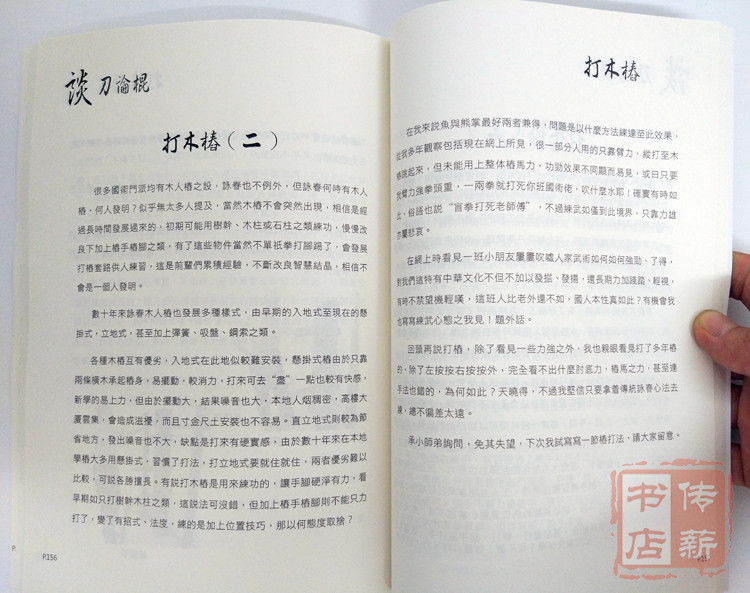 談刀論棍
打木樁（二）
很多國術門派均有木人樁之設，詠春也不例外，但詠春何時有木人
樁，何人發明？似乎無太多人提及，當然木樁不會突然出現，相信是經
過長時間發展過來的，初期可能用樹幹、木柱或石柱之類練功，慢慢改
良下加上樁手樁腳之類，有了這些物件當然不單祇拳打腳踢了，會發展
打樁套路供人練習，這是前輩們累積經驗，不斷改良智慧結晶，相信不
會是一個人發明。
數十年來詠春木人樁也發展多種樣式，由早期的入地式至現在的懸
掛式，立地式，甚至加上彈簧、吸盤、鋼索之類。
各種木樁互有優劣，入地式在此地似較難安裝，懸掛式樁由於只靠
兩條橫木承起樁身，易擺動，較消力，打來可去“盡”一點也較有快感，
新學的易上力，但由於擺動大，結果噪音也大，本地人烟稠密，高樓大
厦雲集，會造成滋擾，而且寸金尺土安裝也不容易。直立地式則較為節
省地方，發出噪音也不大，缺點是打來有硬實感，由於數十年來在本地
學樁大多用懸掛式，習慣了打法，打立地式要就住就住，兩者優劣難以
比較，可說各勝擅長。有説打木樁是用來練功的，讓手腳硬淨有力，看
早期如只打樹幹木柱之類，這說法可沒錯，但加上樁手樁腳則不能只力
打了，變了有招式、法度，練的是加上位置技巧，那以何態度取捨？
P.156
P.
打木樁
在我來説魚與熊掌最好兩者兼得，問題是以什麼方法練達至此效果，
從我多年觀察包括現在網上所見，很一部分人用的只靠臂力，縱打至木
樁跳起來，但未能用上整體樁馬力，功勁效果不同期而易見，或曰只要
我臂力強拳頭重，一兩拳就打死你班國術佬，吹什麼水耶！確實有時如
此，俗諳也説“盲拳打死老師傅”，不過練武如僅到此境界，只靠力雄
亦屬悲哀。
在網上時看見一班小朋友屢屢吹噓人家武術如何如何強勁、了得，
對我們這特有中華文化不但不加以發掘、發揚，還長期力加踐踏，輕視，
有時不禁望機輕嘆，這班人比老外還不如，國人本性真如此？有機會我
也寫寫練武心態之我見！題外話。
回頭再説打樁，除了看見一些力強之外，我也親眼看見打了多年樁
的，除了左按按右按按外，完全看不出什麼肘底力，樁馬之力，甚至連
手法也錯的，為何如此？天曉得，不過我堅信只要拿着傳統詠春心法去
練，總不偏差太遠。
承小師弟詢問，免其失望，下次我試寫寫一節樁打法，請大家留意。
传薪
书店